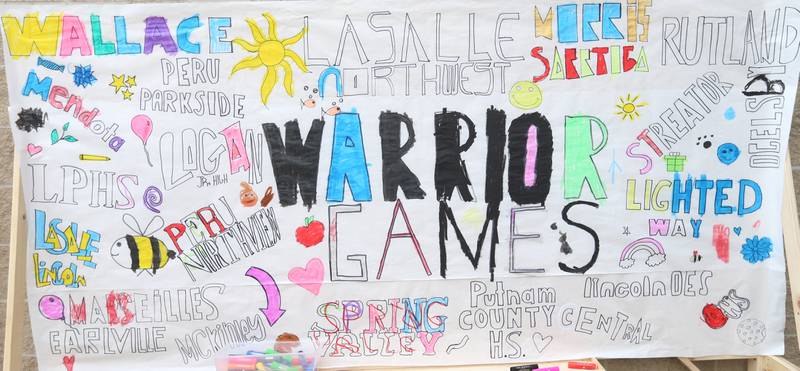 WALLACE
LASALLE
NORTHWEST
MORRIS
SARATOGA
RUTLAND
PERU
PARKSIDE
Mendota
LOGAN
JR. HIGH
WARRIOR
GAMES
STREATOR
OGELSBY
LPHS
LIGHTED
WAY
LASALLE
LINCOLN
PERU
NORTHVIEW
MARSEILLES
EARLVILLE
McKinley
SPRING
VALLEY
Putnam
COUNTY
H.S.
CENTRAL
Lincoln DES